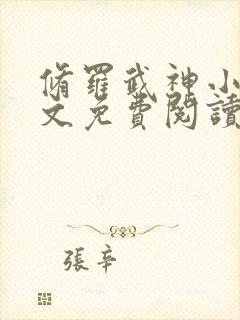 脩羅武神小
文免費閱讀
張辛